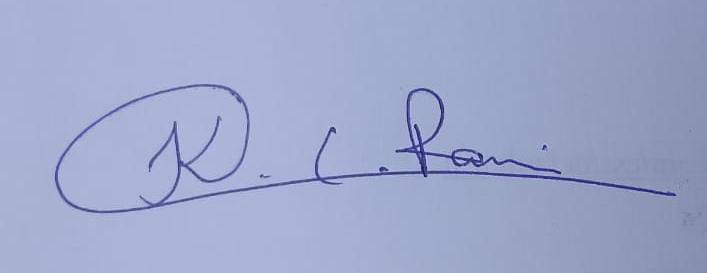 K. C. Rani